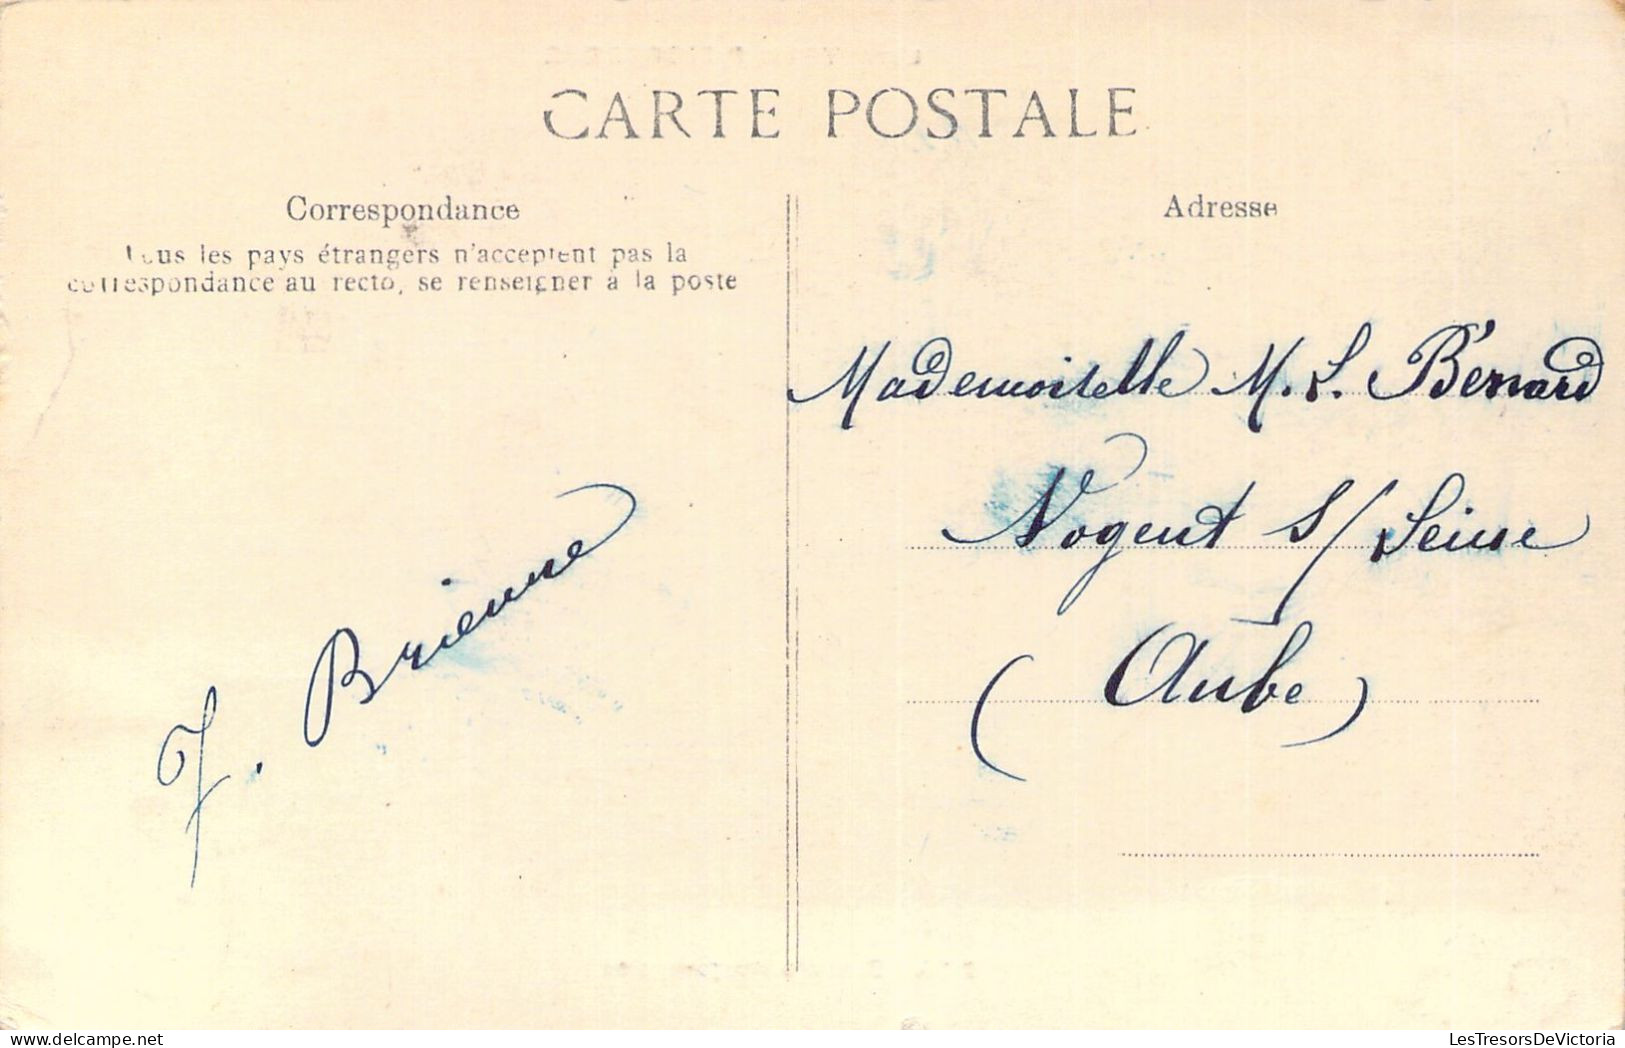 CARTE POSTALE
Correspondance
Tous les pays étrangers n'acceptent pas la
correspondance au recto, se renseigner à la poste
J. Brienne
Adresse
Mademoiselle M. L. Bénard
Nogent s/ Seine
(Aube)
LesTresorsDeVictoria